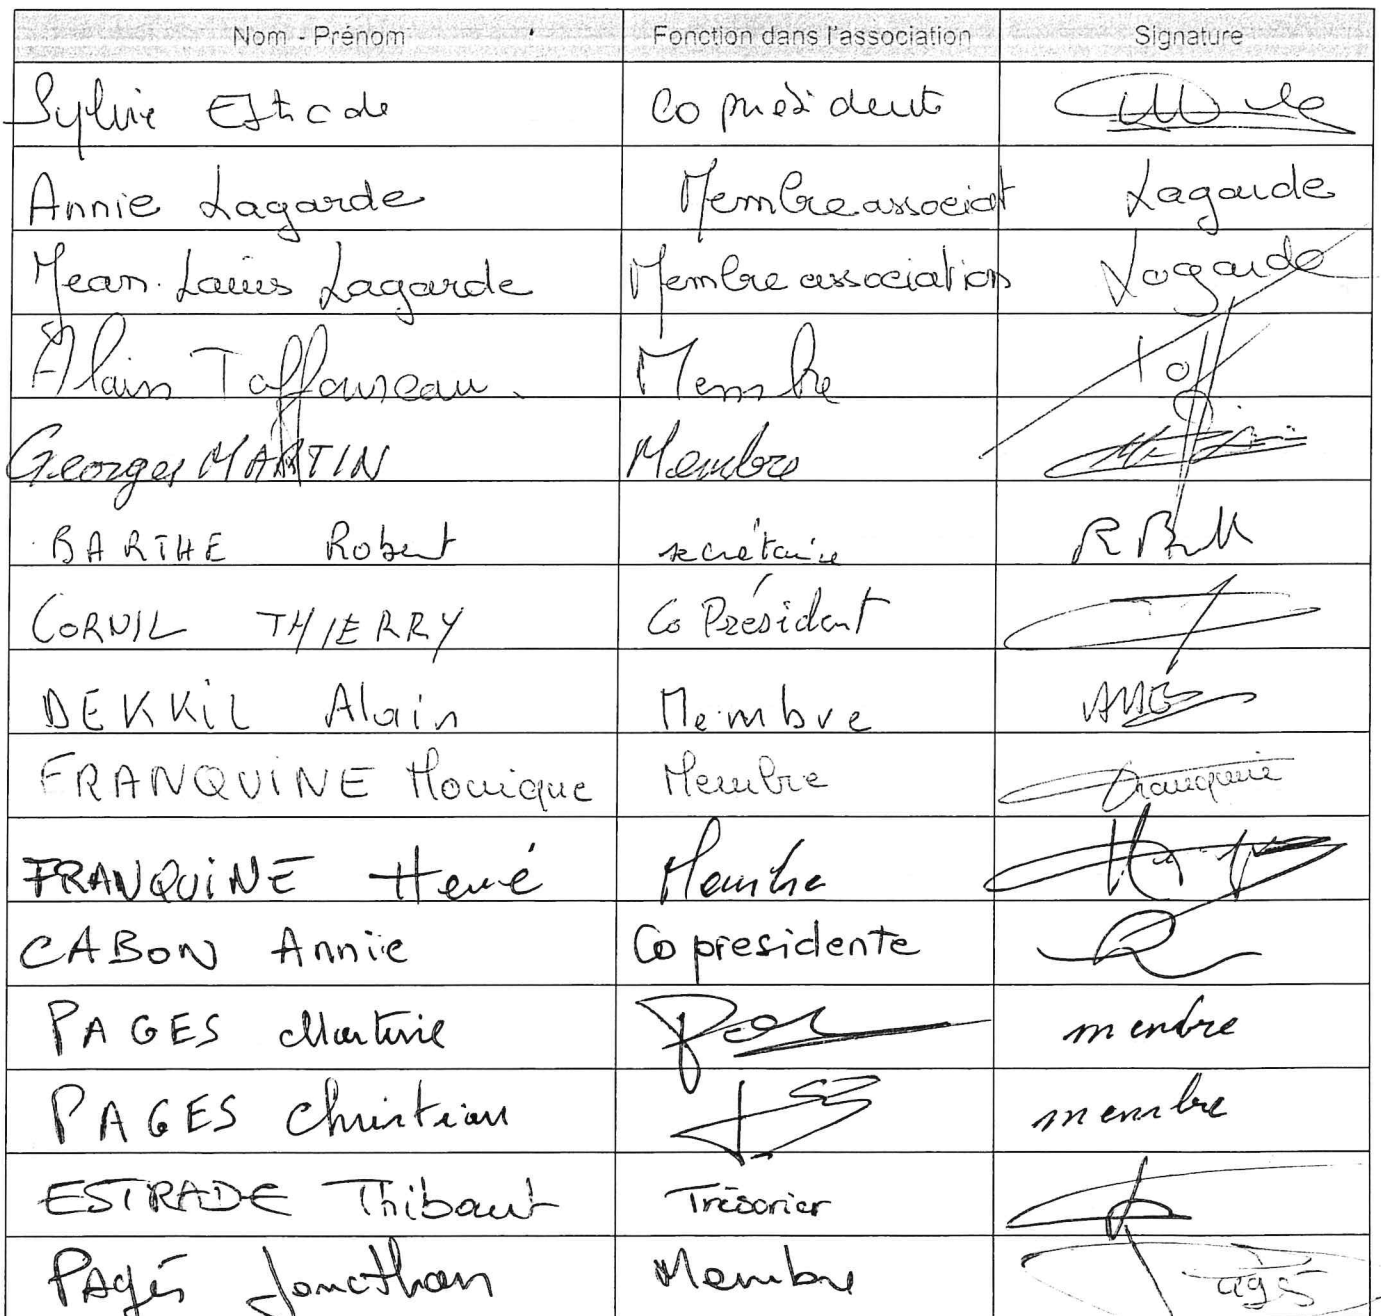 Nom - Prénom Fonction dans l'association Signature
Sylvie Co président
Annie Lagarde Membre associat Lagarde
Jean. Louis Lagarde Membre association Lagarde
Alain Taffoureau. Membre
Georges MARTIN Membre
BARTHE Robert secrétaire
CORNIL THIERRY Co Président
DEKKiL Alain Membre
FRANQUiNE Monique Membre Franquine
FRANQUiNE Hervé Membre
CABON Annie Co presidente
PAGES Martine membre
PAGES Christian membre
ESTRADE Thibaut Trésorier
PAgés Jonathan Membre Pagés